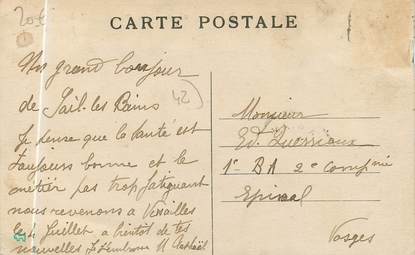 20€
CARTE POSTALE
Un grand bonjour
de Sail-les Bains
42
Je pense que la santé est
toujours bonne et le
métier pas trop fatiguant
nous revenons à Versailles
le 4 Juillet a bientot de tes
nouvelles Je t'embrasse
Monsieur
Ed.
1e BA 2e Compnie
Epinal
Vosges